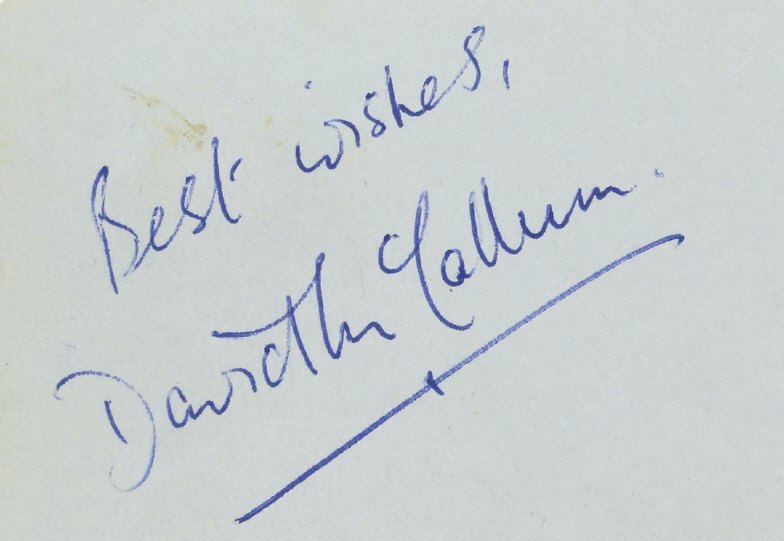 Best wishes,
David McCallum.